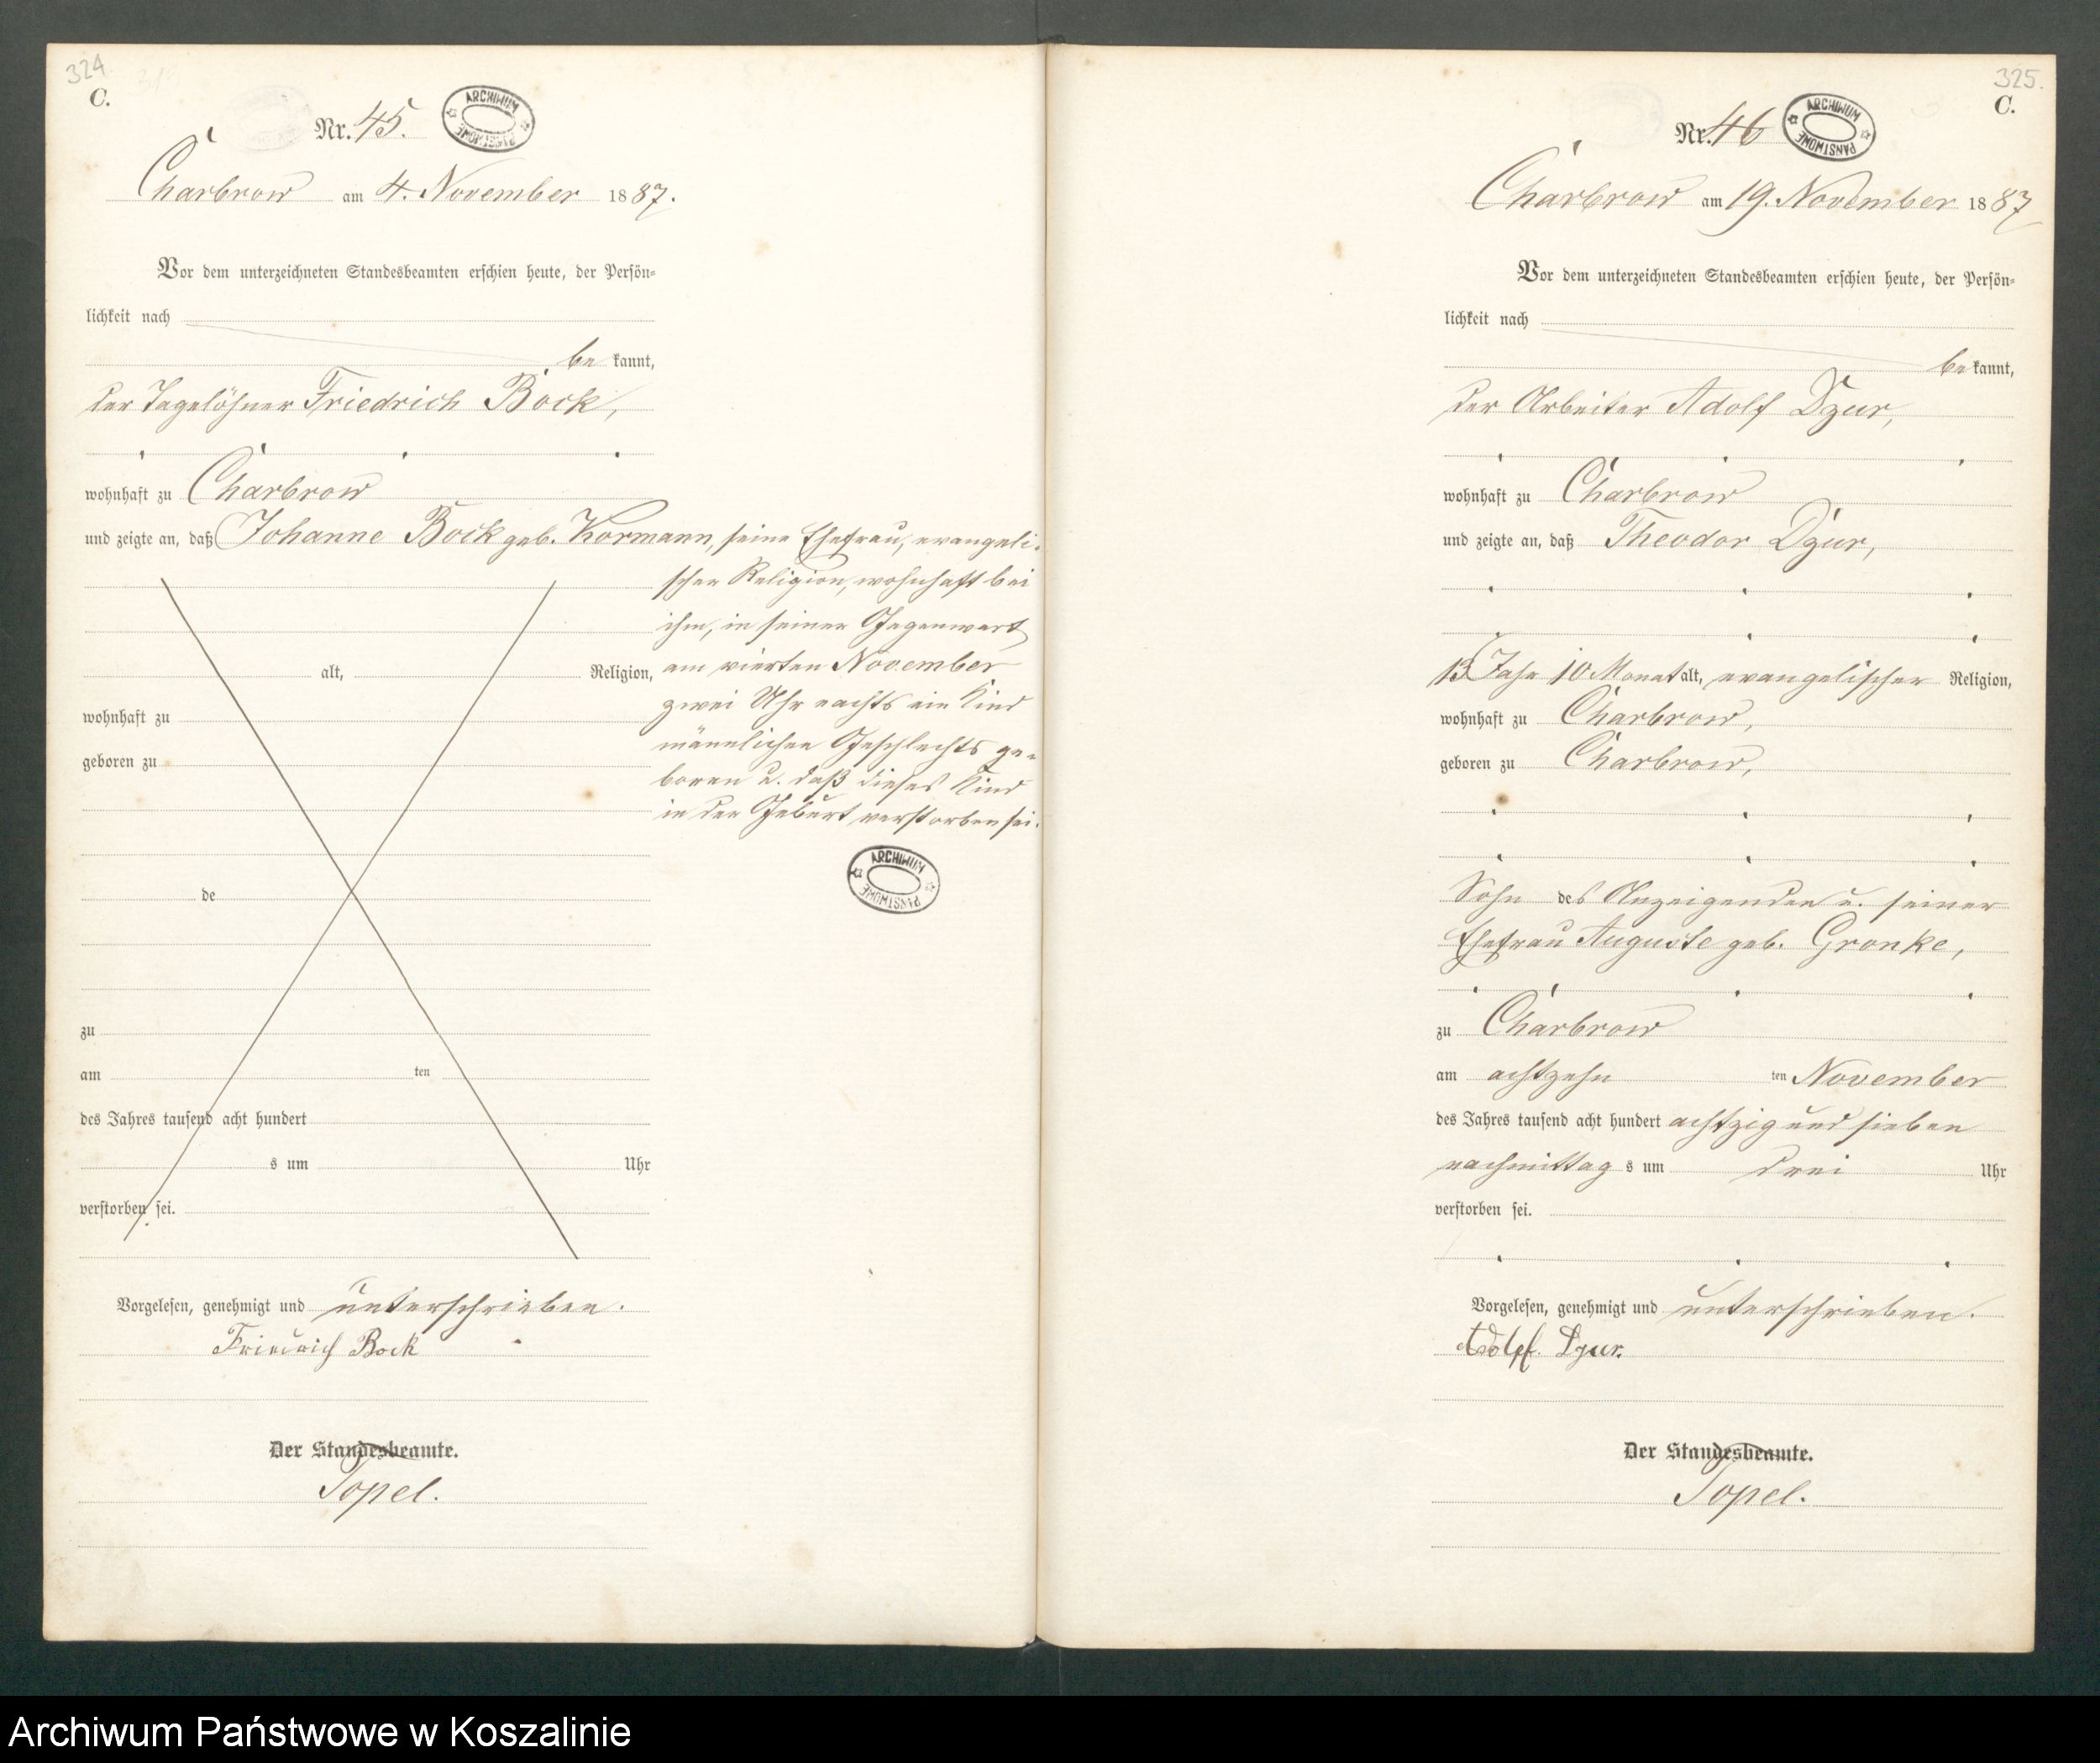 324
C.
Nr. 45.
ARCHIWUM PAŃSTWOWE
Charbrow am 4. November 1887.
Vor dem unterzeichneten Standesbeamten erschien heute, der Persön-
lichkeit nach
be kannt,
der Tagelöhner Friedrich Bock,
wohnhaft zu Charbrow
und zeigte an, daß Johanne Bock geb. Kormann, seine Ehefrau, evangeli-
scher Religion, wohnhaft bei
ihm, in seiner Gegenwart
alt, Religion, am vierten November
wohnhaft zu zwei Uhr nachts ein Kind
männlichen Geschlechts ge-
geboren zu
boren u. daß dieses Kind
in der Geburt verstorben sei.
ARCHIWUM PAŃSTWOWE
de
zu
am ten
des Jahres tausend acht hundert
s um Uhr
verstorben sei.
Vorgelesen, genehmigt und unterschrieben.
Friedrich Bock
Der Standesbeamte.
Topel.
325.
C.
Nr. 46
ARCHIWUM PAŃSTWOWE
Charbrow am 19. November 1887
Vor dem unterzeichneten Standesbeamten erschien heute, der Persön-
lichkeit nach
be kannt,
der Arbeiter Adolf Dzur,
wohnhaft zu Charbrow
und zeigte an, daß Theodor Dzur,
13 Jahr 10 Monat alt, evangelischer Religion,
wohnhaft zu Charbrow,
geboren zu Charbrow,
Sohn des Anzeigenden u. seiner
Ehefrau Auguste geb. Gronke,
zu Charbrow
am achtzehn ten November
des Jahres tausend acht hundert achtzig und sieben
nachmittag s um drei Uhr
verstorben sei.
Vorgelesen, genehmigt und unterschrieben.
Adolf Dzur.
Der Standesbeamte.
Topel.
Archiwum Państwowe w Koszalinie